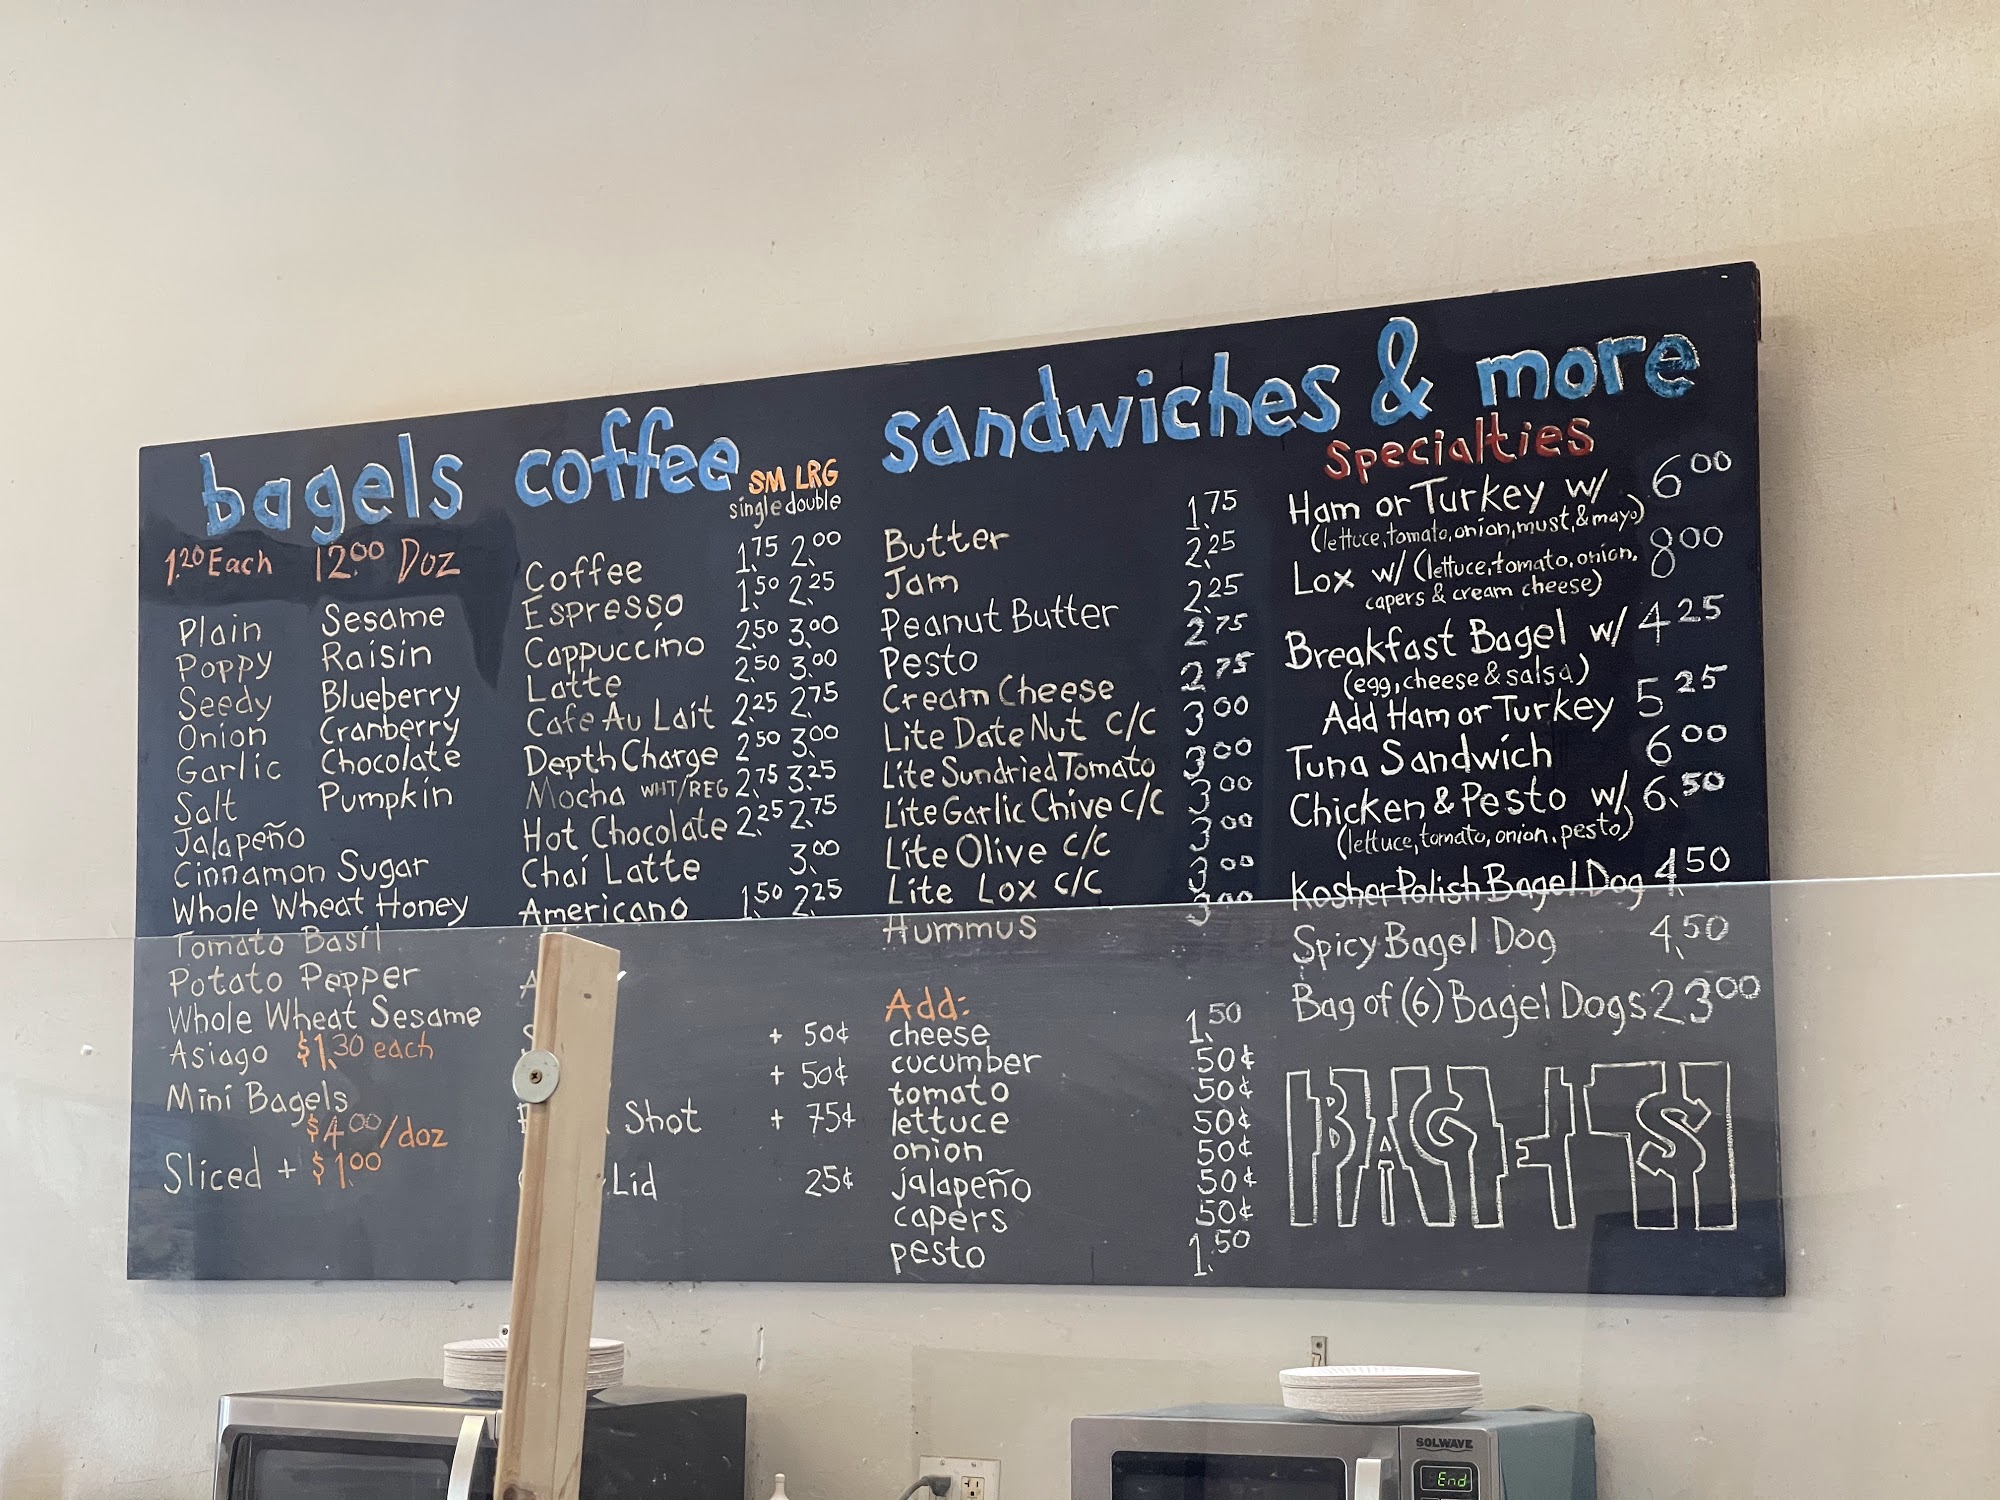 bagels
1.20 Each 12.00 Doz
Plain
Poppy
Seedy
Onion
Garlic
Salt
Jalapeño
Cinnamon Sugar
Whole Wheat Honey
Tomato Basil
Potato Pepper
Whole Wheat Sesame
Asiago $1.30 each
Mini Bagels
$4.00/doz
Sliced + $1.00
Sesame
Raisin
Blueberry
Cranberry
Chocolate
Pumpkin
coffee
SM LRG
single double
Coffee 1.75 2.00
Espresso 1.50 2.25
Cappuccino 2.50 3.00
Latte 2.50 3.00
Cafe Au Lait 2.25 2.75
Depth Charge 2.50 3.00
Mocha WHT/REG 2.75 3.25
Hot Chocolate 2.25 2.75
Chai Latte 3.00
Americano 1.50 2.25
+ 50¢
+ 50¢
Shot + 75¢
Lid 25¢
sandwiches & more
Butter 1.75
Jam 2.25
Peanut Butter 2.25
Pesto 2.75
Cream Cheese 2.75
Lite Date Nut C/C 3.00
Lite Sundried Tomato 3.00
Lite Garlic Chive C/C 3.00
Lite Olive C/C 3.00
Lite Lox C/C 3.00
Hummus 3.00
Add:
cheese 1.50
cucumber 50¢
tomato 50¢
lettuce 50¢
onion 50¢
jalapeño 50¢
capers 50¢
pesto 1.50
Specialties
Ham or Turkey w/ 6.00
(lettuce, tomato, onion, must, & mayo)
Lox w/ (lettuce, tomato, onion, 8.00
capers & cream cheese)
Breakfast Bagel w/ 4.25
(egg, cheese & salsa)
Add Ham or Turkey 5.25
Tuna Sandwich 6.00
Chicken & Pesto w/ 6.50
(lettuce, tomato, onion, pesto)
Kosher Polish Bagel Dog 4.50
Spicy Bagel Dog 4.50
Bag of (6) Bagel Dogs 23.00
BAGELS
SOLWAVE
End